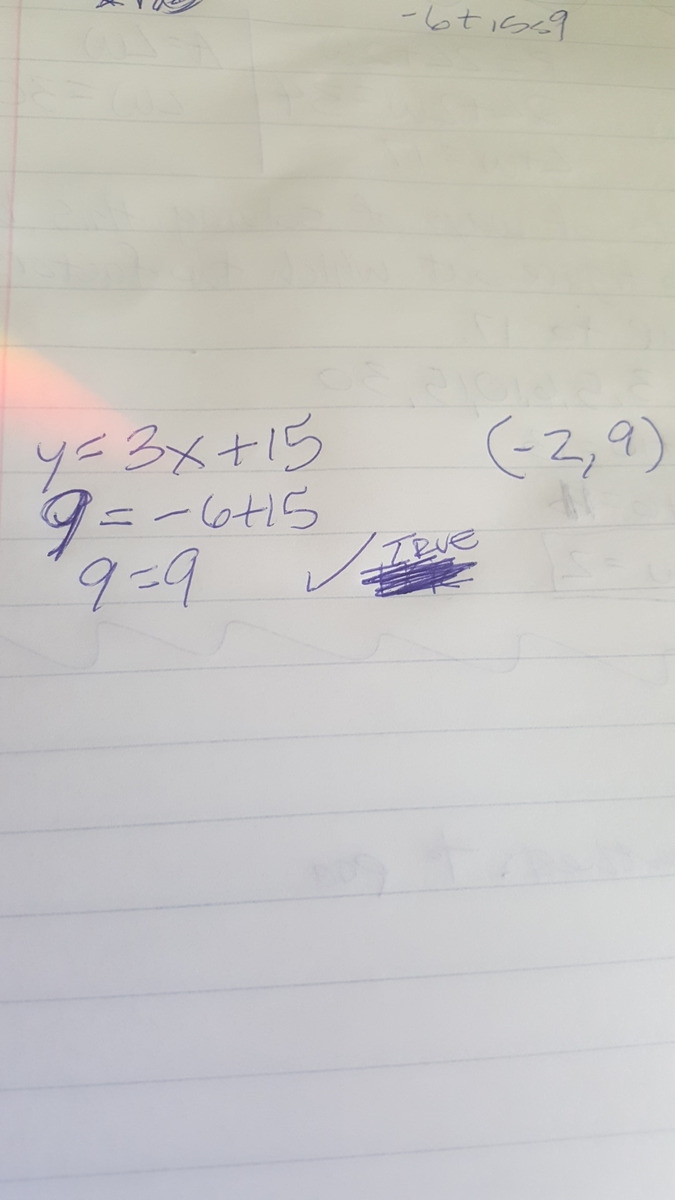 -6+15=9
y= 3x+15 (-2, 9)
9 = -6+15
9=9 ✓ TRUE